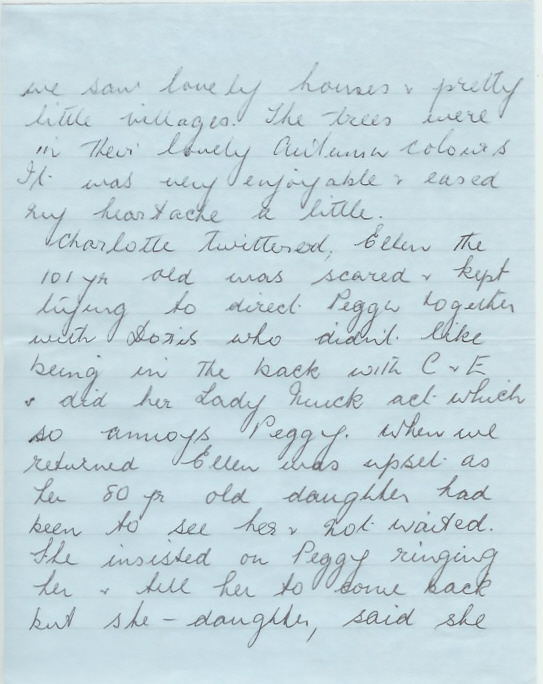 we saw lovely houses & pretty
little villages. The trees were
in their lovely Autumn colours
It was very enjoyable & eased
my heartache a little.
Charlotte twittered, Ellen the
101 yr old was scared & kept
trying to direct Peggy together
with Doris who didn't like
being in the back with C & E
& did her Lady Muck act which
so annoys Peggy. When we
returned Ellen was upset as
her 80 yr old daughter had
been to see her & not waited.
She insisted on Peggy ringing
her & tell her to come back
but she - daughter, said she